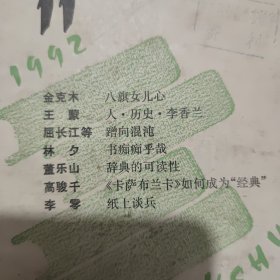 11
1992
金克木 八旗女儿心
王蒙 人·历史·李香兰
屈长江等 蹭向混沌
林夕 书痴痴乎哉
董乐山 辞典的可读性
高骏千 《卡萨布兰卡》如何成为“经典”
李零 纸上谈兵